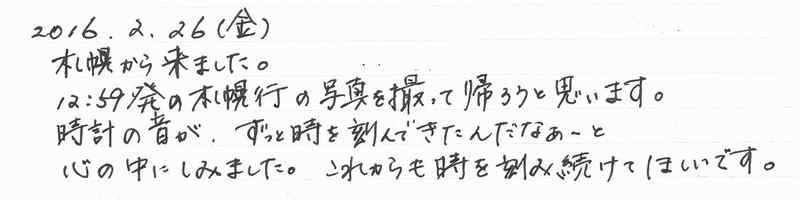 2016.2.26(金)
札幌から来ました。
12:59発の札幌行の写真を撮って帰ろうと思います。
時計の音が、ずっと時を刻んできたんだなぁ〜と
心の中にしみました。これからも時を刻み続けてほしいです。